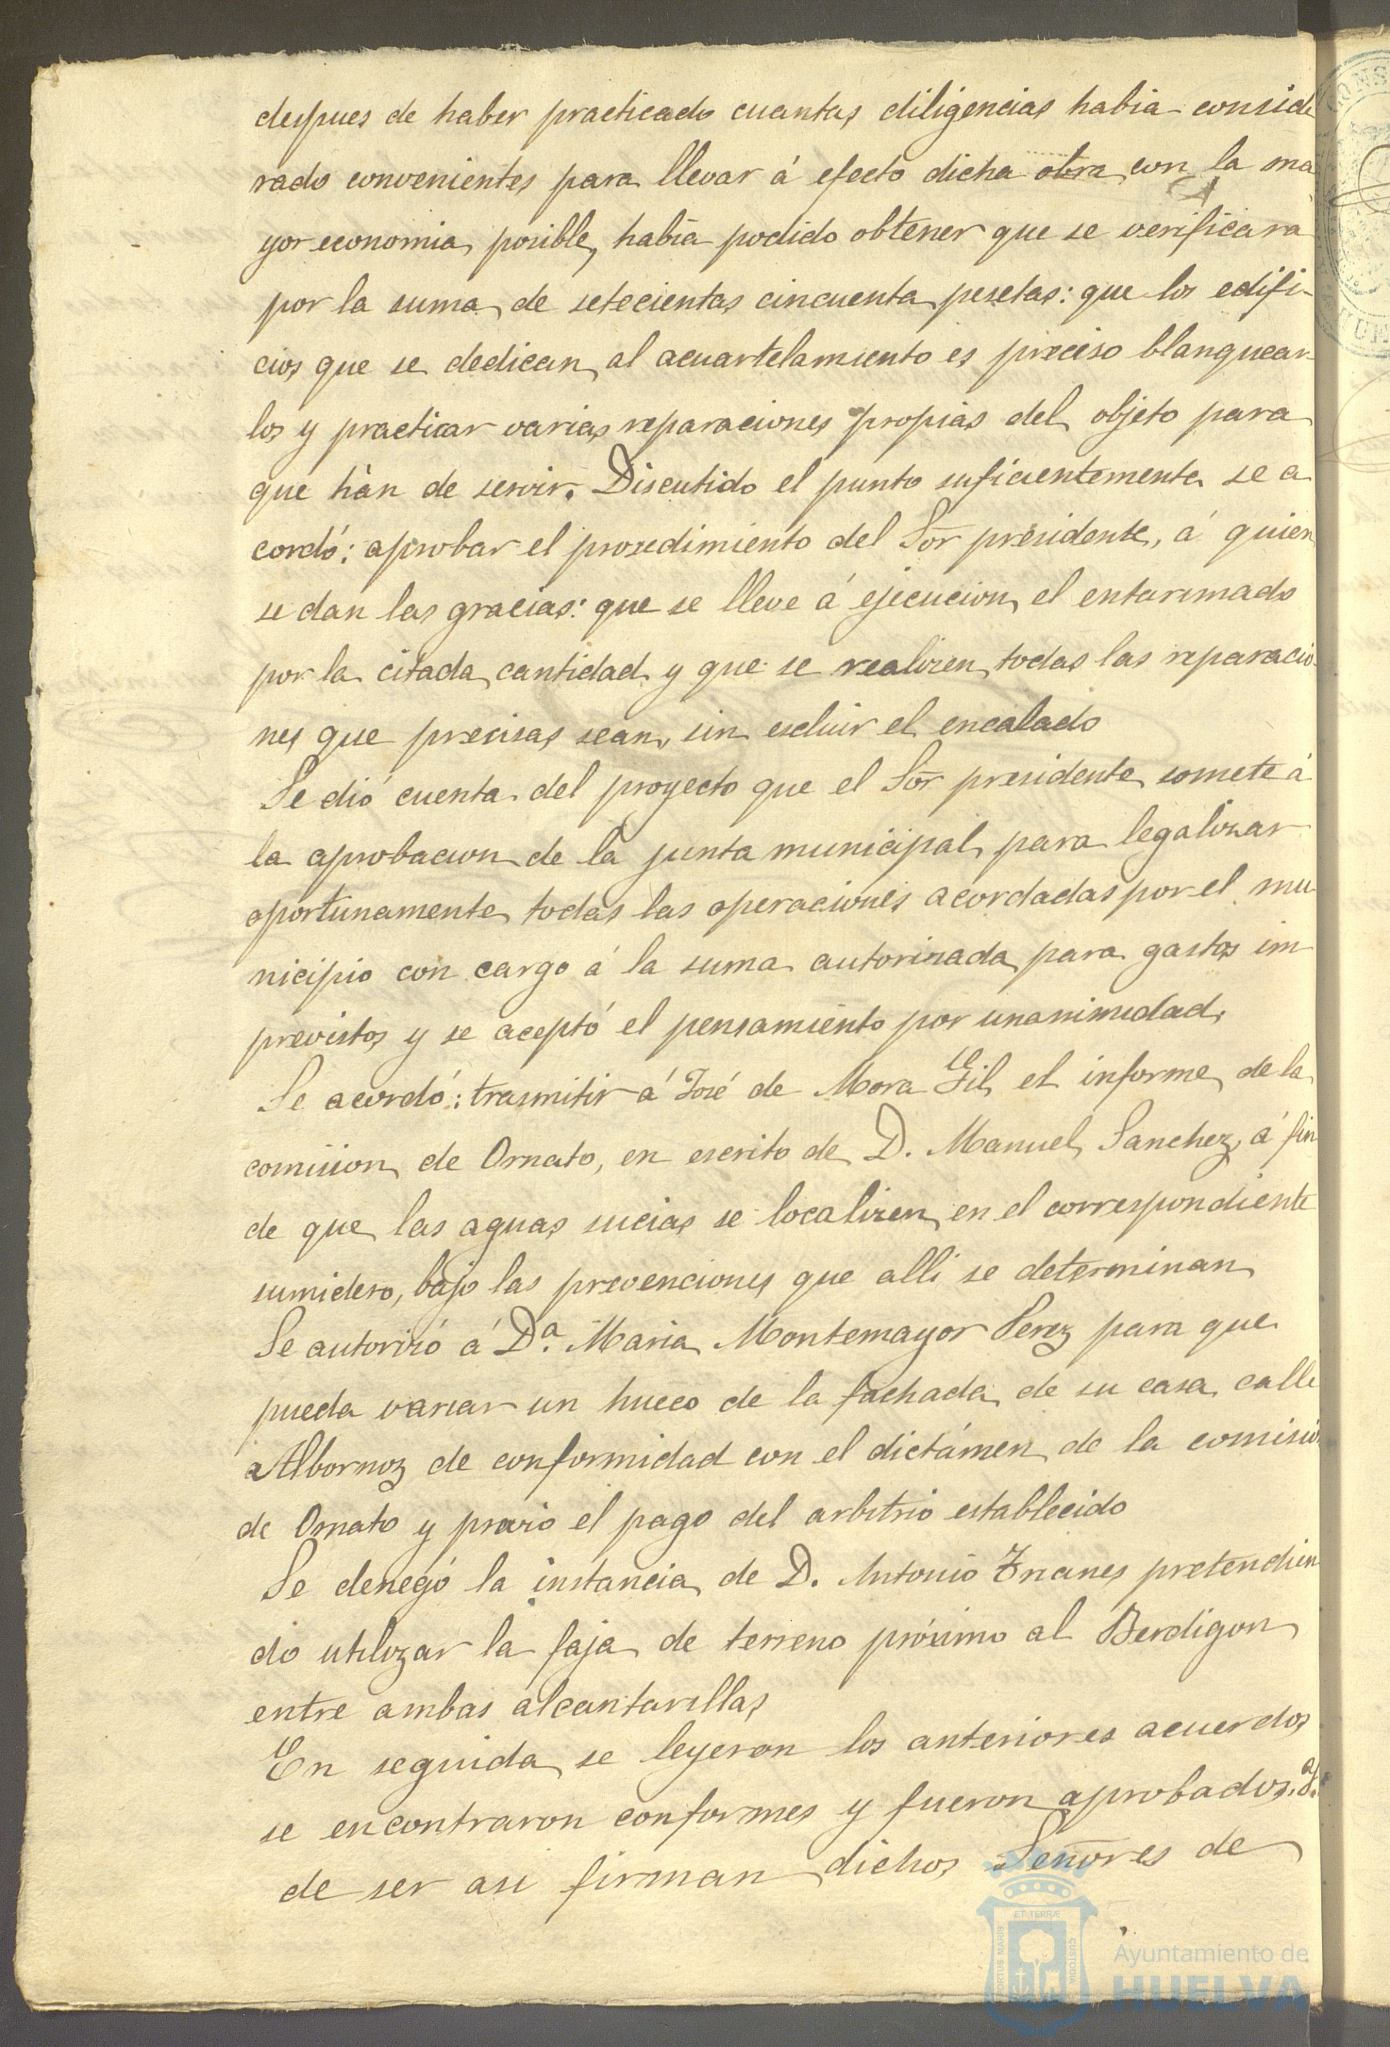 despues de haber practicado cuantas diligencias habia conside
rado convenientes para llevar á efecto dicha obra con la ma
yor economia posible, habia podido obtener que se verificara
por la suma de setecientas cincuenta pesetas: que los edifi-
cios que se dedican al acuartelamiento es preciso blanquear
los y practicar varias reparaciones propias del objeto para
que hán de servir. Discutido el punto suficientemente se a
cordó: aprobar el prosedimiento del Sor presidente, á quien
se dan las gracias: que se lleve á ejecucion el entarimado
por la citada cantidad y que se realizen todas las reparacio
nes que precisas sean, sin escluir el encalado
Se dió cuenta del proyecto que el Sor presidente somete á
la aprobacion de la junta municipal para legalizar
oportunamente todas las operaciones acordadas por el mu
nicipio con cargo á la suma autorizada para gastos im
previstos y se aceptó el pensamiento por unanimidad.
Se acordó: trasmitir á José de Mora Gil el informe de la
comision de Ornato, en escrito de D. Manuel Sanchez, á fin
de que las aguas sucias se localizen en el correspondiente
sumidero, bajo las prevenciones que alli se determinan
Se autorizó á Dª. Maria Montemayor Perez para que
pueda variar un hueco de la fachada de su casa calle
Albornoz de conformidad con el dictámen de la comisio
de Ornato y previo el pago del arbitrio establecido
Se denegó la instancia de D. Antonio Trianes pretendien
do utilizar la faja de terreno próximo al Berdigon
entre ambas alcantarillas
En seguida se leyeron los anteriores acuerdos
se encontraron conformes y fueron aprobados.
de ser asi firman dichos Señores de
PORTUS MARIS
ET TERRÆ
CUSTODIA
Ayuntamiento de
HUELVA